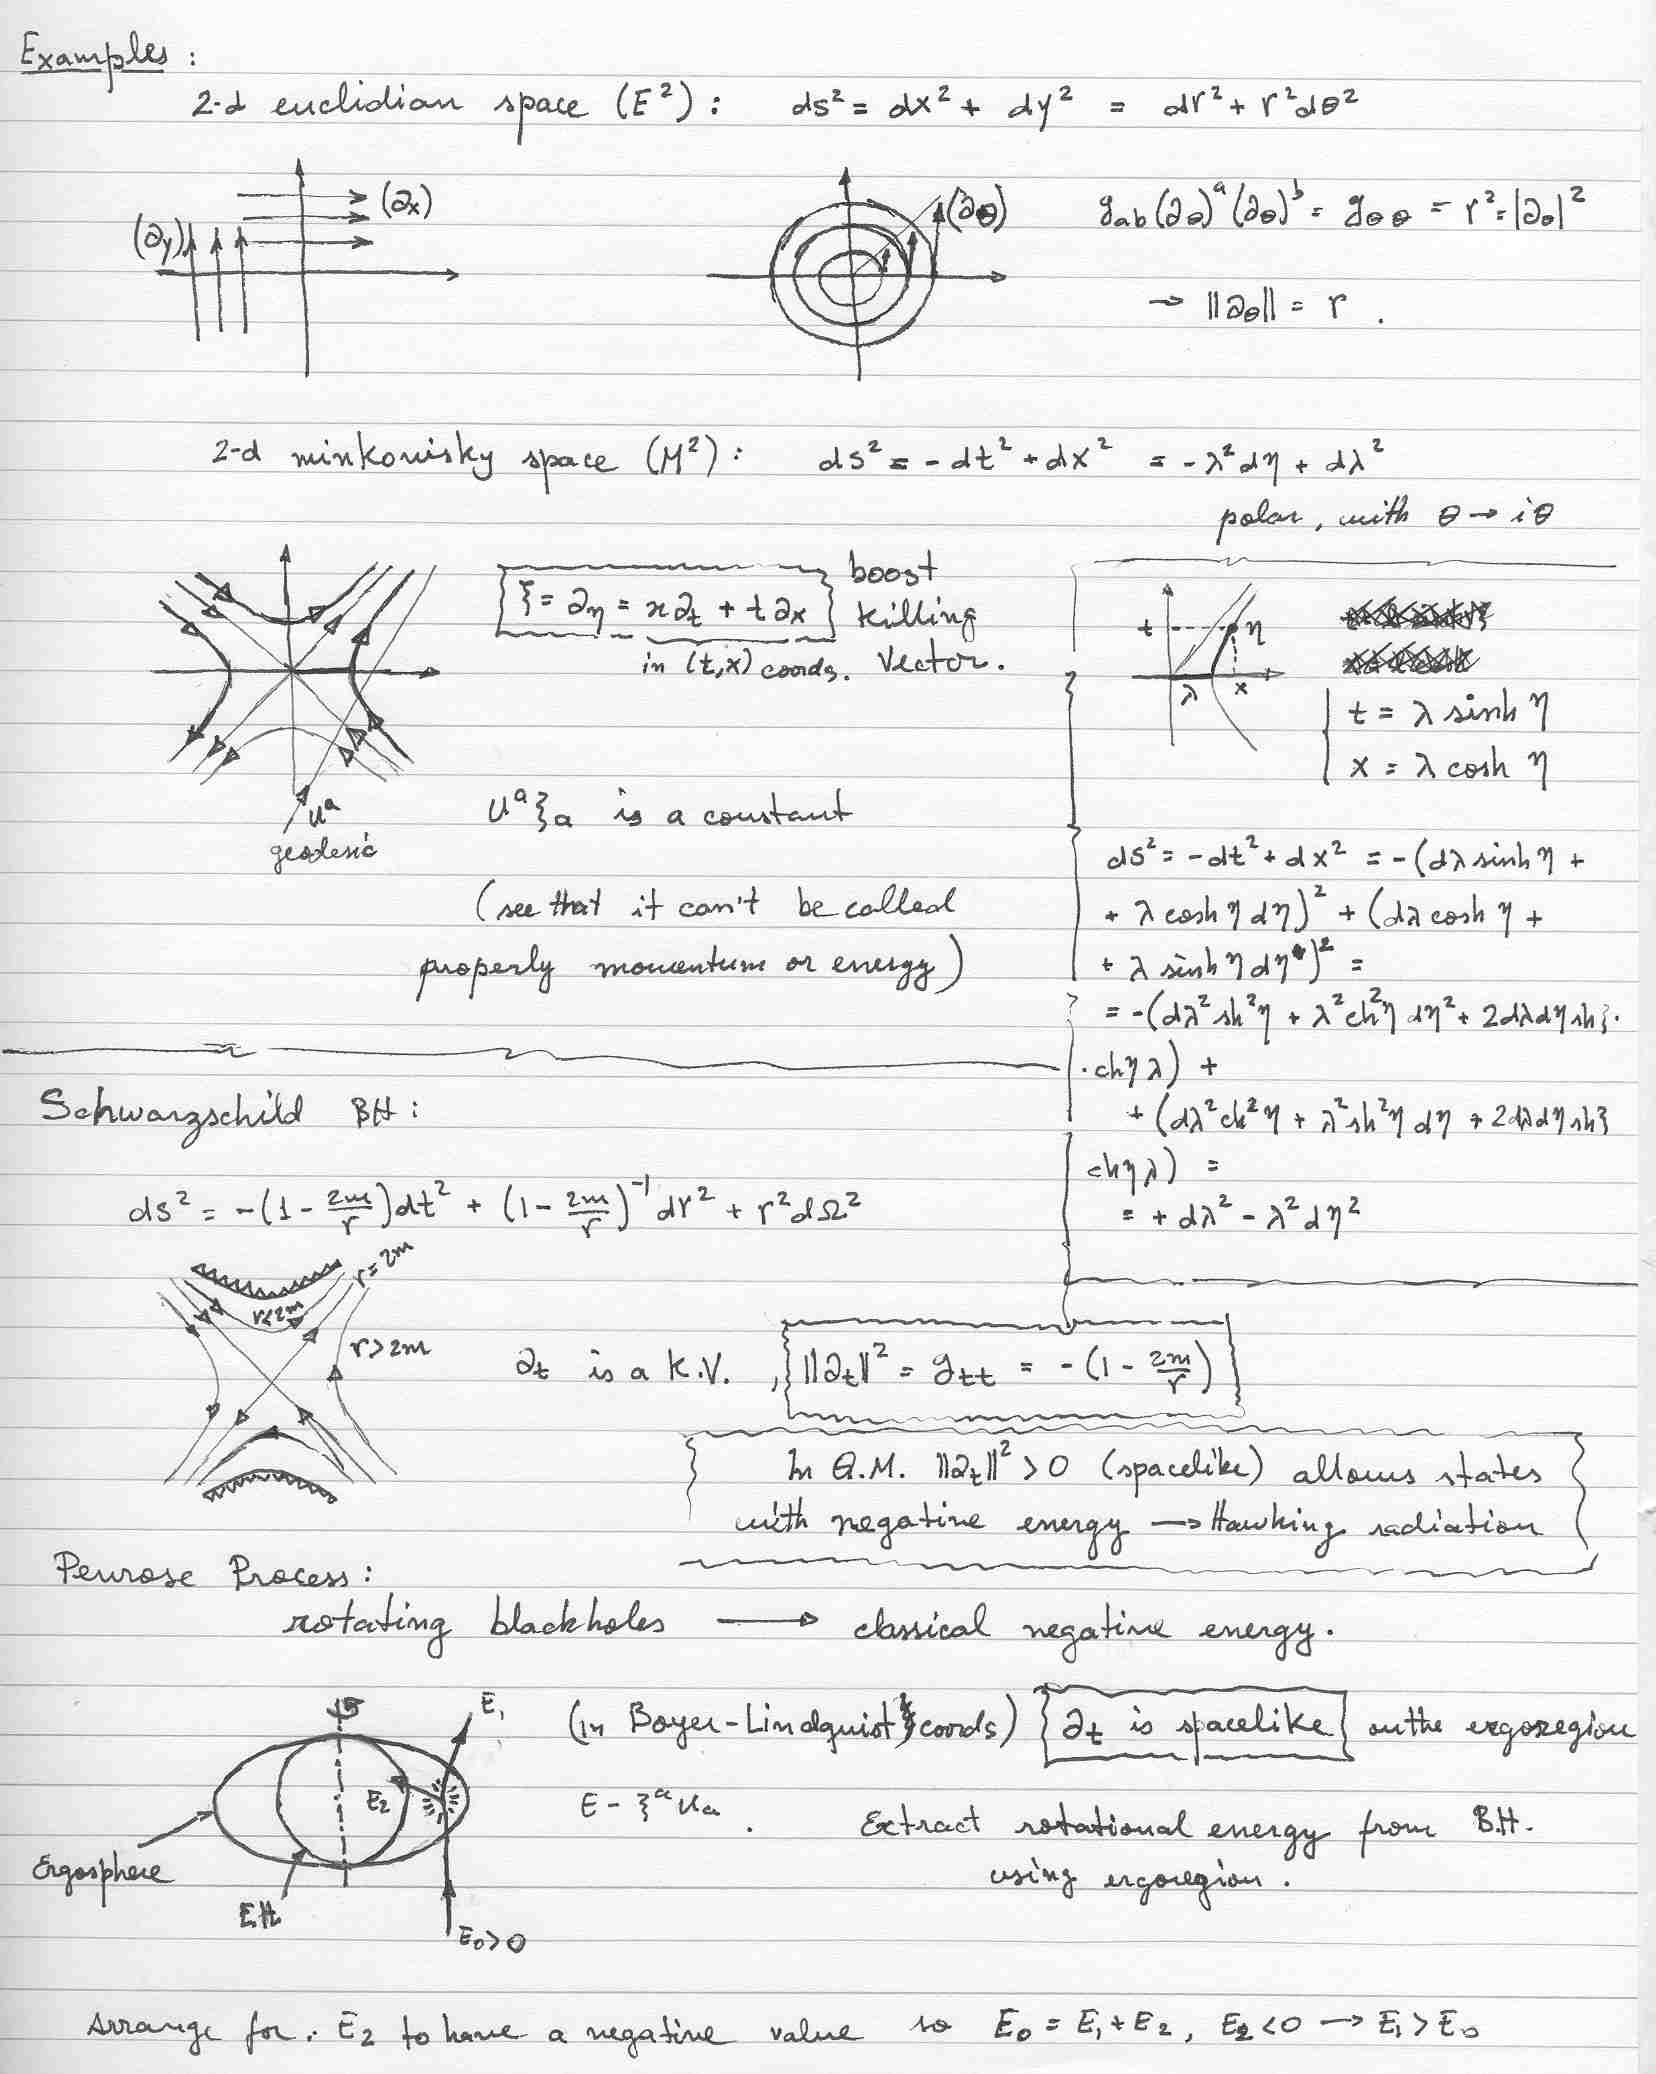 Examples :
2-d euclidian space (E²) : ds² = dx² + dy² = dr² + r²dθ²
(∂y) (∂x) (∂θ) gab(∂θ)ᵃ(∂θ)ᵇ = gθθ = r² = |∂θ|²
→ ||∂θ|| = r .
2-d minkowisky space (M²) : ds² = -dt² + dx² = -λ²dη + dλ²
polar, with θ → iθ
ξ = ∂η = x∂t + t∂x boost
killing
in (t,x) coords. vector.
t η
λ x
t = λ sinh η
x = λ cosh η
uᵃ
geodesic
uᵃξa is a constant
(see that it can't be called
properly momentum or energy)
ds² = -dt² + dx² = -(dλ sinh η +
+ λ cosh η dη)² + (dλ cosh η +
+ λ sinh η dη)² =
= -(dλ² sh²η + λ² ch²η dη² + 2dλdη sh ξ ·
· chη λ) +
+ (dλ² ch²η + λ² sh²η dη + 2dλdη sh ξ
chη λ) =
= + dλ² - λ² dη²
Schwarzschild BH :
ds² = -(1 - 2m/r)dt² + (1 - 2m/r)⁻¹dr² + r²dΩ²
r=2m
r<2m
r>2m
∂t is a K.V. , ||∂t||² = gtt = -(1 - 2m/r)
In Q.M. ||∂t||² > 0 (spacelike) allows states
with negative energy → Hawking radiation
Penrose Process :
rotating blackholes → classical negative energy.
E₁
(In Boyer-Lindquist coords) ∂t is spacelike on the ergoregion
E₂
E - ξᵃua . Extract rotational energy from B.H.
using ergoregion .
Ergosphere
E.H.
E₀>0
Arrange for . E₂ to have a negative value so E₀ = E₁ + E₂ , E₂ < 0 → E₁ > E₀